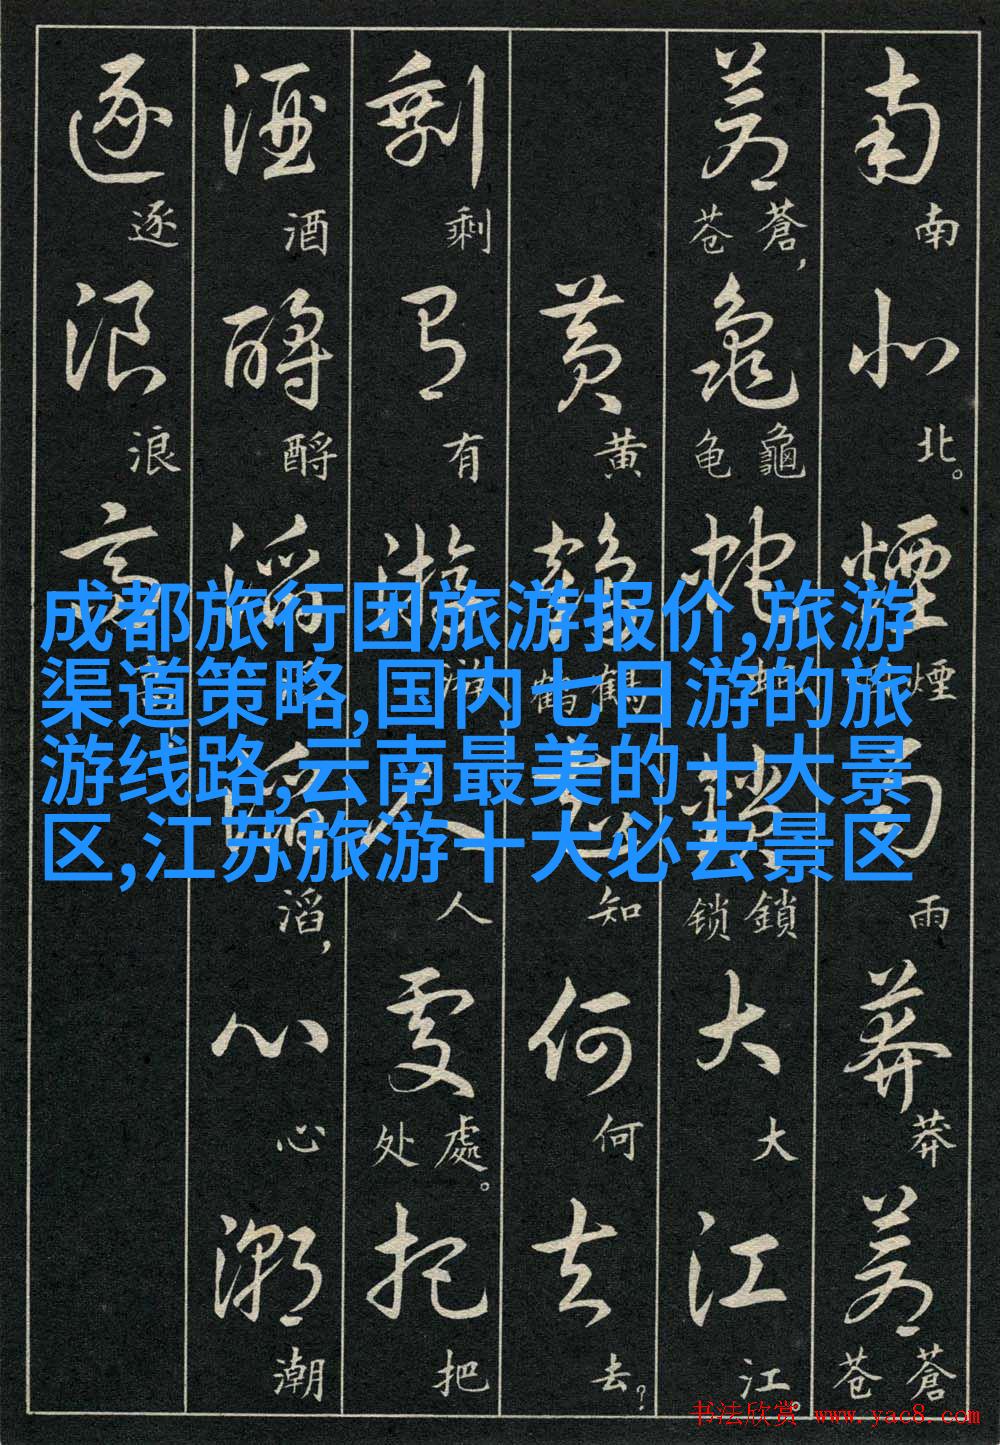 成都旅行团旅游报价,旅游
渠道策略,国内七日游的旅
游线路,云南最美的十大景
区,江苏旅游十大必去景区
南北煙雨莽蒼
南北。煙雨莽蒼苍
蒼龜蛇鎖大江
蒼苍,龜龟蛇鎖锁大江。
黄鶴知何去
黄鶴鹤知何去?
剩有游人處把
剩有游人處处。把
酒酹滔滔心潮
酒酹滔,心潮
逐浪高
逐浪高
书法欣赏 www.yac8.com